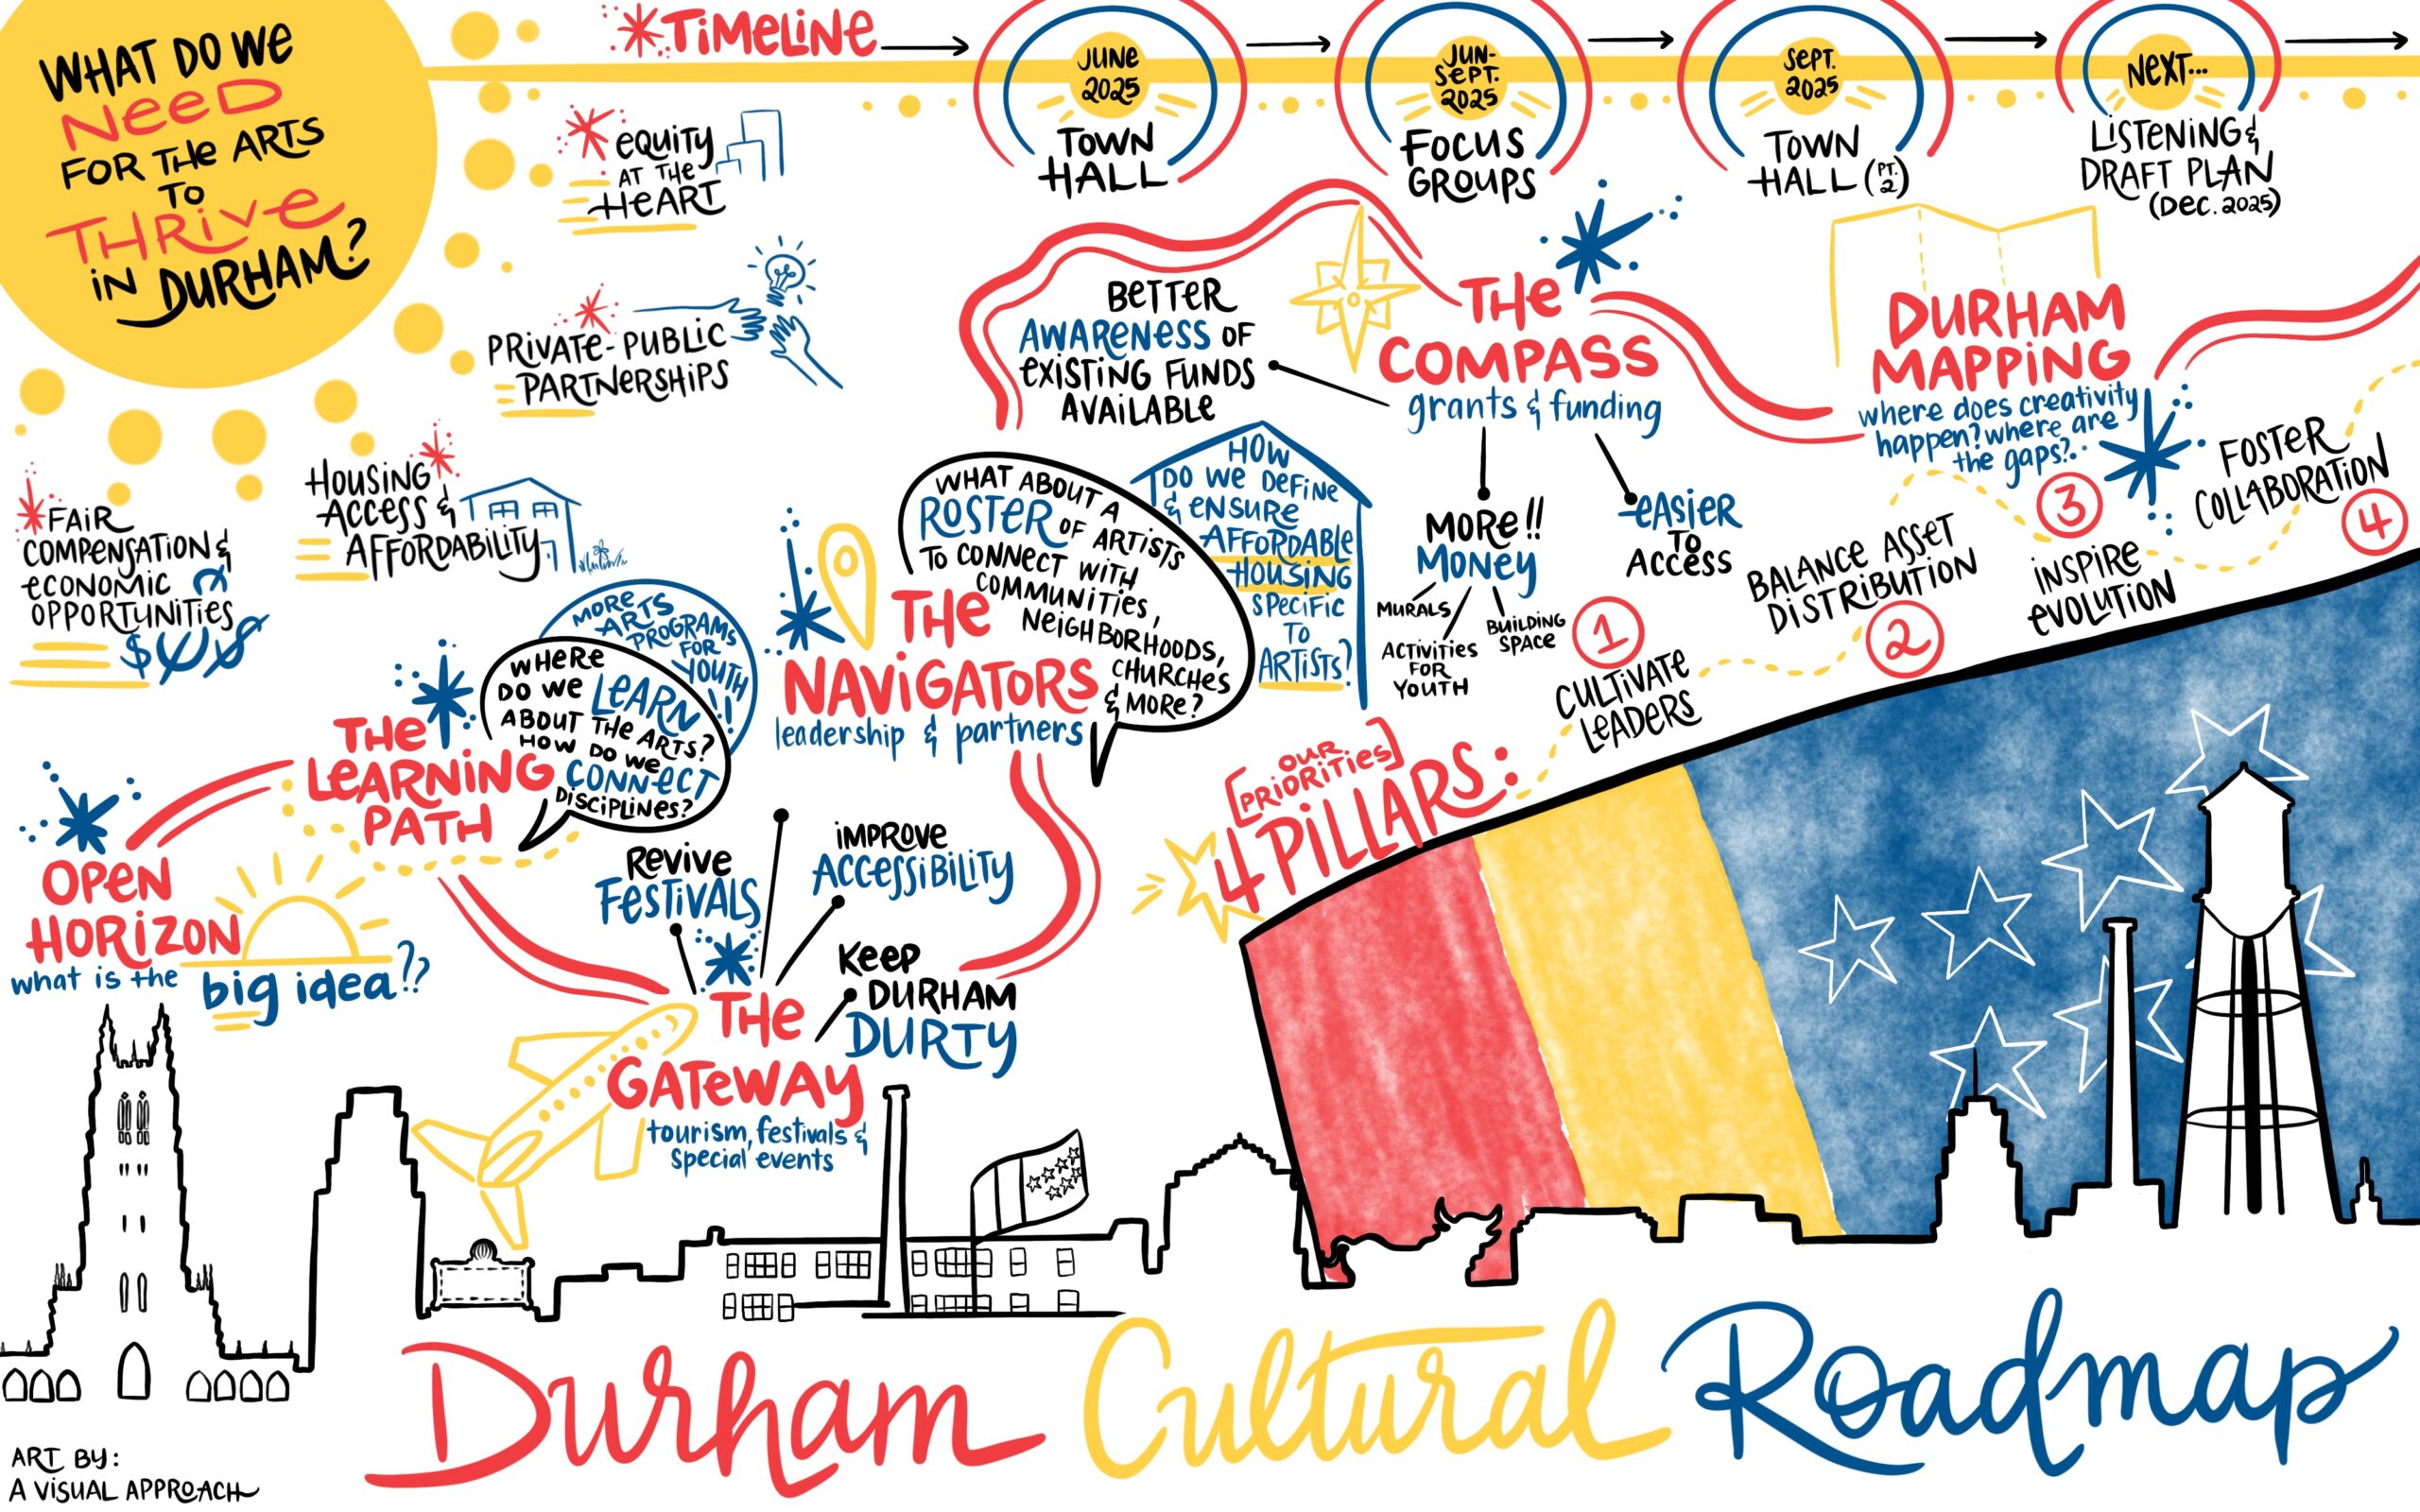 WHAT DO WE
NEED
FOR THE ARTS
TO
THRIVE
IN DURHAM?
TIMELINE
JUNE
2025
TOWN
HALL
JUN-
SEPT.
2025
FOCUS
GROUPS
SEPT.
2025
TOWN
HALL (PT.
2)
NEXT...
LISTENING &
DRAFT PLAN
(DEC. 2025)
EQUITY
AT THE
HEART
PRIVATE-PUBLIC
PARTNERSHIPS
HOUSING
ACCESS &
AFFORDABILITY
FAIR
COMPENSATION &
ECONOMIC
OPPORTUNITIES
$
OPEN
HORIZON
what is the
big idea??
THE
LEARNING
PATH
WHERE
DO WE LEARN
ABOUT THE ARTS?
HOW DO WE
CONNECT
DISCIPLINES?
MORE
ARTS
PROGRAMS
FOR
YOUTH
!!
THE
GATEWAY
tourism, festivals &
special events
REVIVE
FESTIVALS
IMPROVE
ACCESSIBILITY
KEEP
DURHAM
DURTY
THE
NAVIGATORS
leadership & partners
WHAT ABOUT A
ROSTER OF ARTISTS
TO CONNECT WITH
COMMUNITIES,
NEIGHBORHOODS,
CHURCHES
& MORE?
HOW
DO WE DEFINE
& ENSURE
AFFORDABLE
HOUSING
SPECIFIC
TO
ARTISTS?
THE
COMPASS
grants & funding
BETTER
AWARENESS OF
EXISTING FUNDS
AVAILABLE
MORE!!
MONEY
MURALS
ACTIVITIES
FOR
YOUTH
BUILDING
SPACE
EASIER
TO
ACCESS
DURHAM
MAPPING
where does creativity
happen? where are
the gaps?
[OUR
PRIORITIES]
4 PILLARS:
1
CULTIVATE
LEADERS
BALANCE ASSET
DISTRIBUTION
2
3
INSPIRE
EVOLUTION
FOSTER
COLLABORATION
4
Durham Cultural Roadmap
ART BY:
A VISUAL APPROACH